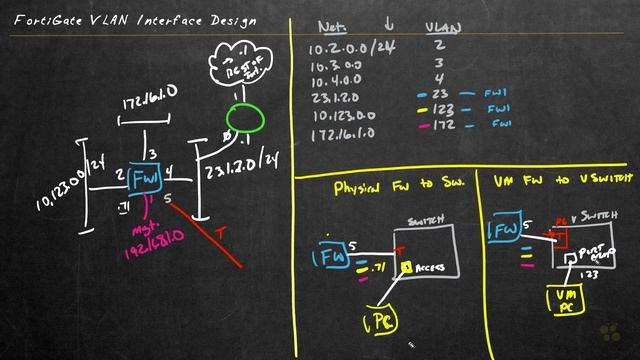 FortiGate VLAN Interface Design
→ .1
REST OF
Int.
172.16.1.0
.1
23.1.2.0/24
10.123.0.0/24
2
3
4
FW1
.71
1
5
T
mgt.
192.168.1.0
Net. ↓ VLAN
10.2.0.0/24 2
10.3.0.0 3
10.4.0.0 4
23.1.2.0 23 — FW1
10.123.0.0 123 — FW1
172.16.1.0 172 — FW1
Physical FW to SW.
SWITCH
FW
5
T
.71
ACCESS
PC
VM FW to VSWITCH
V SWITCH
FW
5
PG
T
PORT
GROUP
123
VM
PC